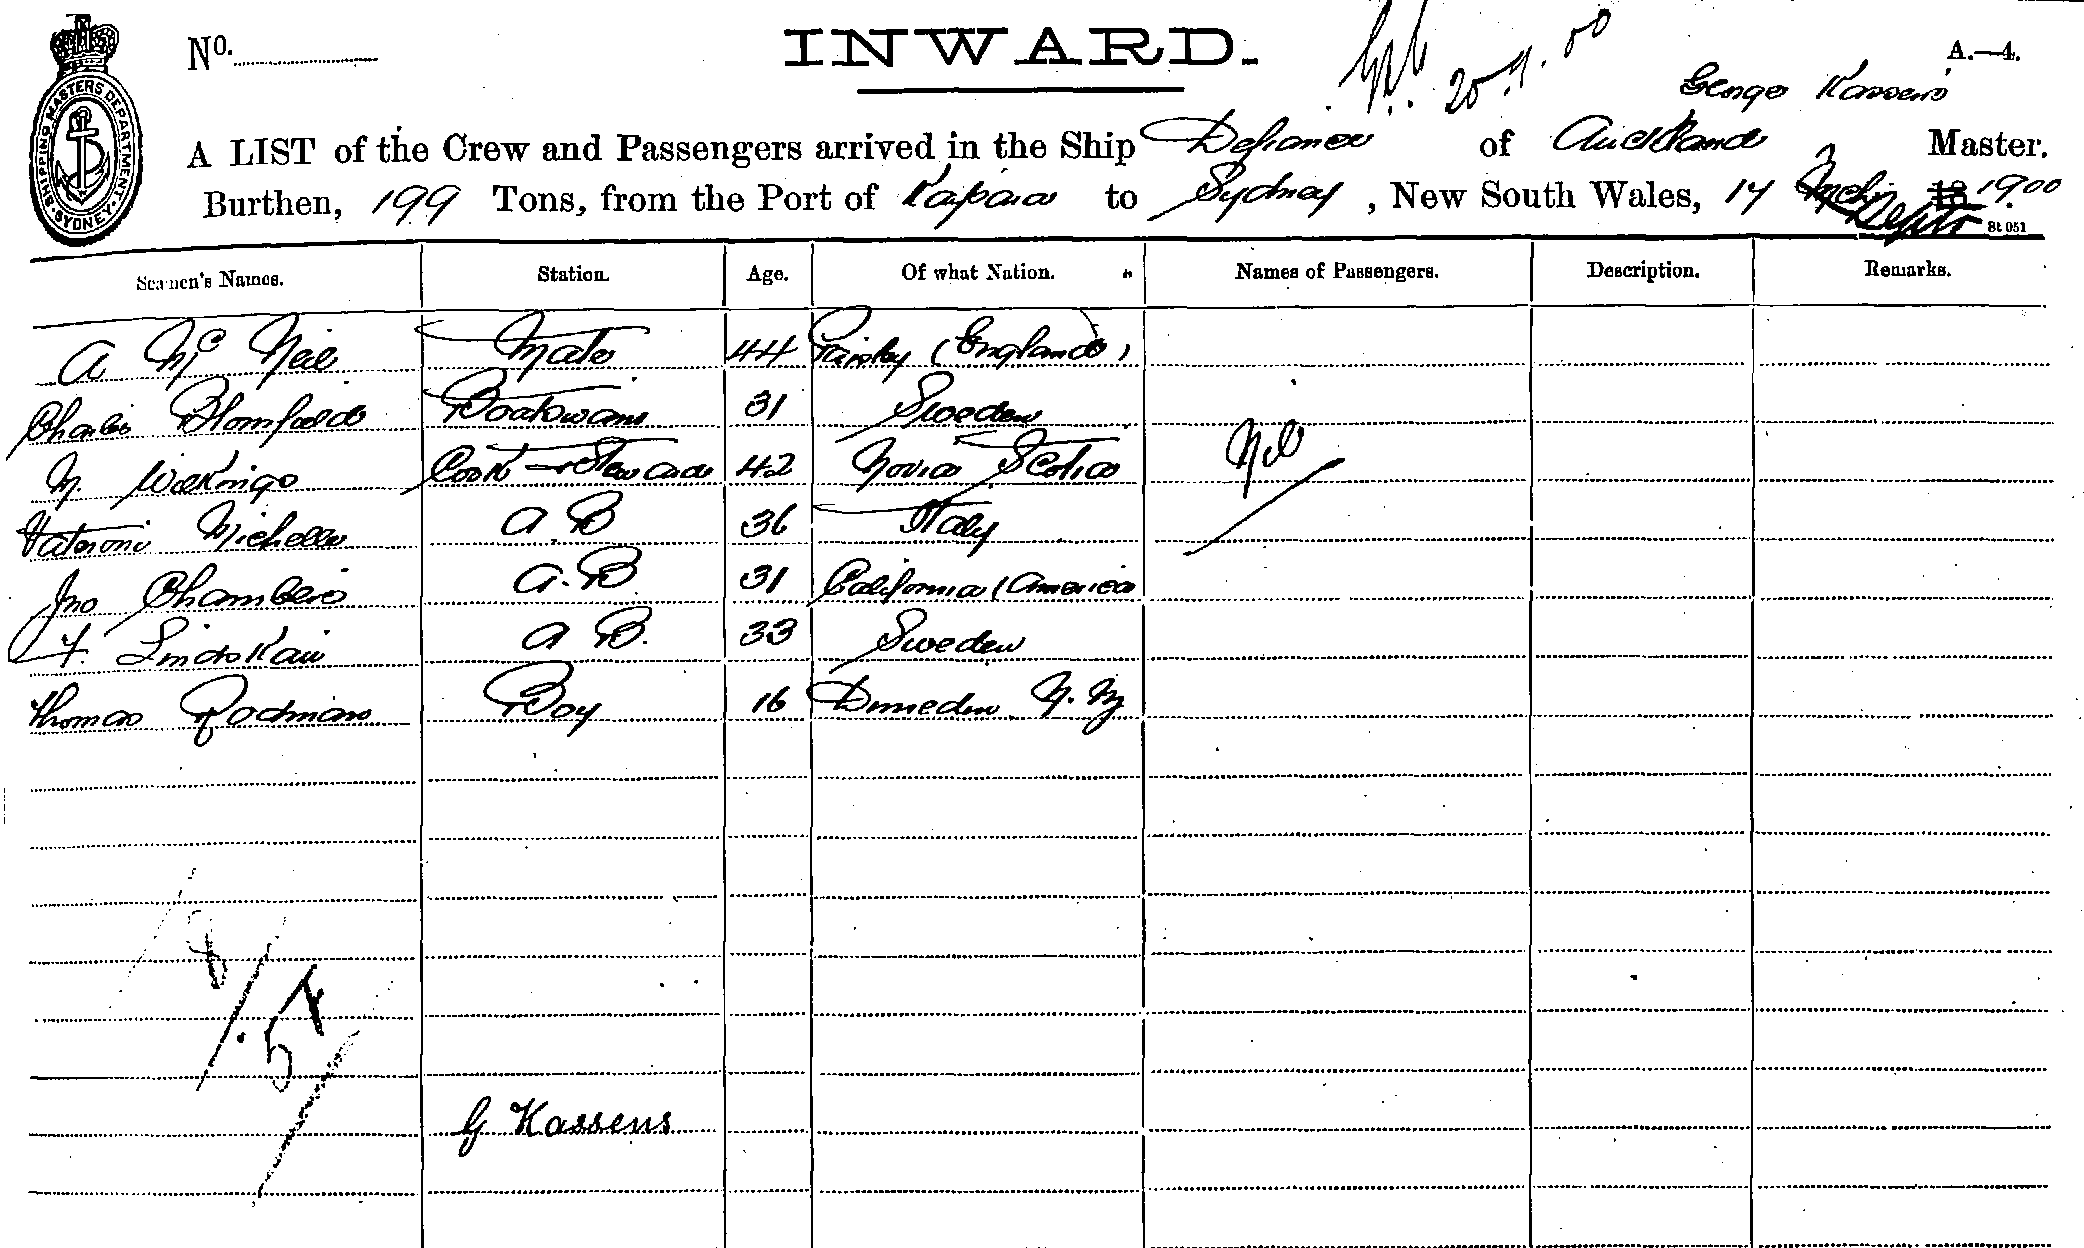 No. INWARD. 20.9.00 A.—4.
SHIPPING MASTERS DEPARTMENT SYDNEY
George Kassens
A LIST of the Crew and Passengers arrived in the Ship Defiance of Auckland, Master.
Burthen, 199 Tons, from the Port of Kaipara to Sydney, New South Wales, 17 Septr 18 1900
8t 051
Seamen's Names. Station. Age. Of what Nation. Names of Passengers. Description. Remarks.
A McNeil Mate 44 Paisley (England)
Charles Blomfield Boatswain 31 Sweden
M. Cook & Steward 42 Novia Scotia Nil
Michelle A B 36 Italy
Jno Chambers A.B 31 California (America
F. A B. 33 Sweden
Thomas Rodman Boy 16 Dunedin N.Z
G Kassens